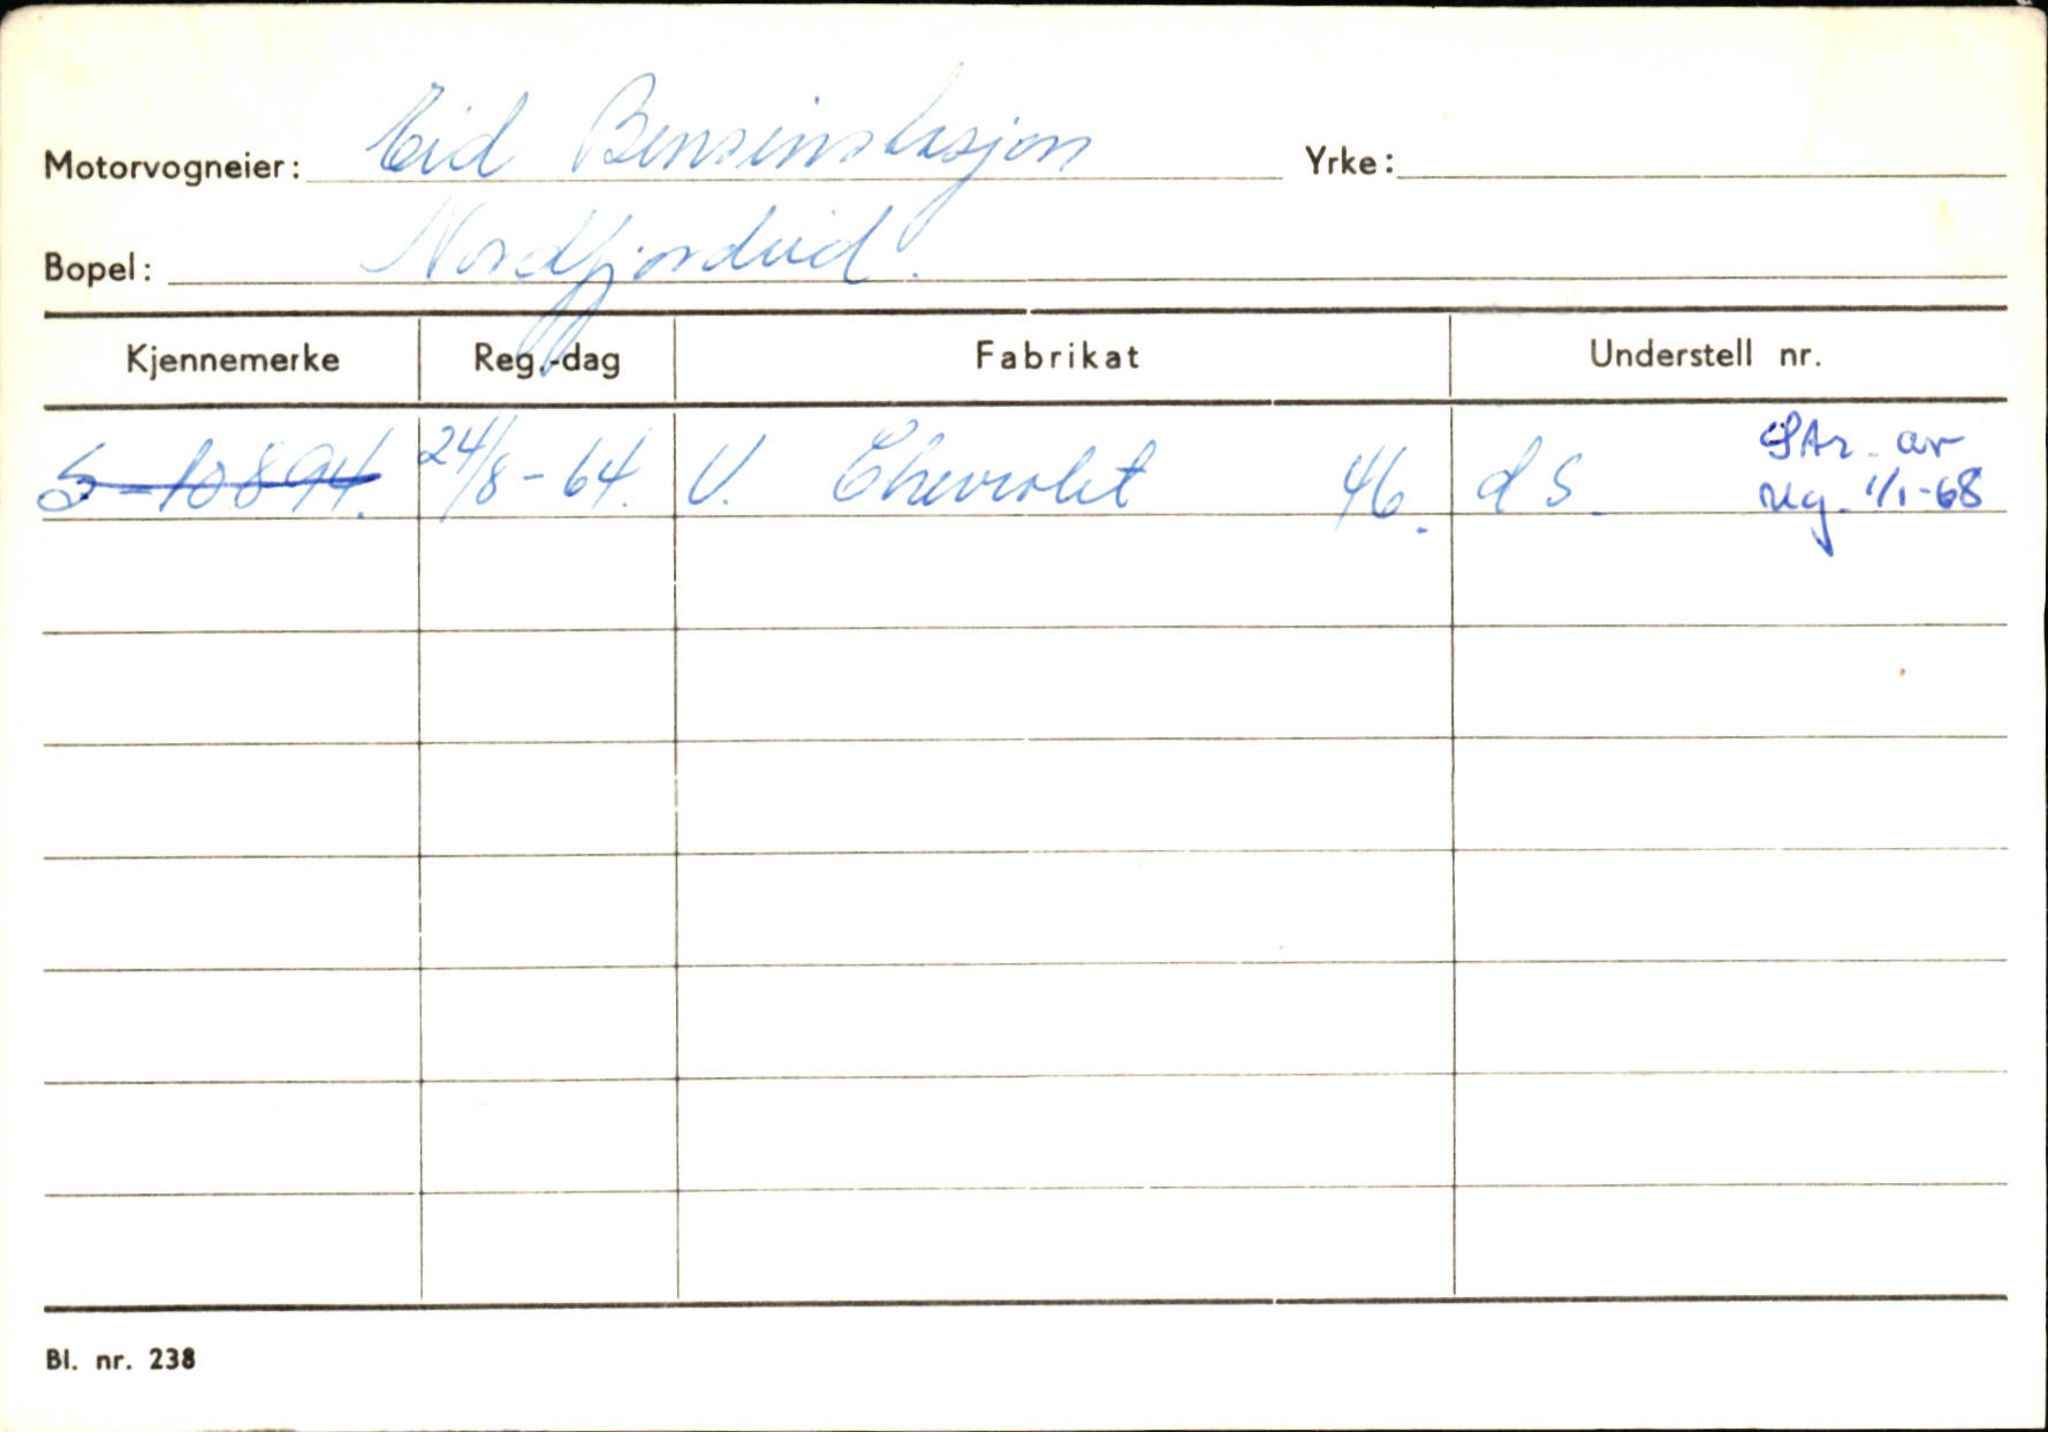 Motorvogneier: Eid Bensinstasjon Yrke:
Bopel: Nordfjordeid.
Kjennemerke Reg.-dag Fabrikat Understell nr.
S-10894. 24/8-64. V. Chevrolet 46. d S. Str. av
reg. 1/1-68
Bl. nr. 238